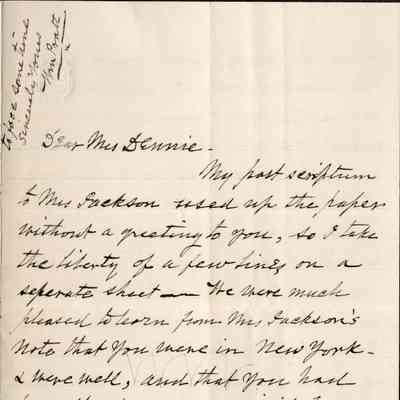 Dear Mrs Dennie -
My post scriptum
to Mrs Jackson used up the paper
without a greeting to you, so I take
the liberty of a few lines on a
seperate sheet — We were much
pleased to learn from Mrs Jackson's
note that you were in New York -
& were well, and that you had
to see some time
Sincerely Yours
Wm Pratt